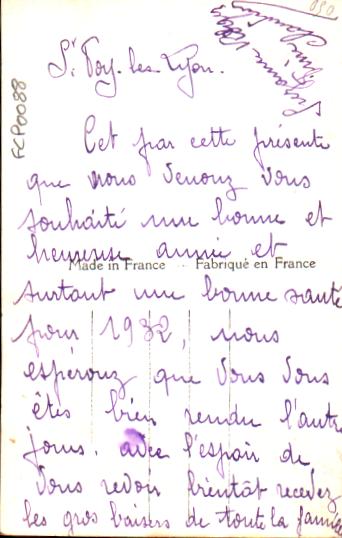 St. Foy-les-Lyon.
Cet par cette présente
que nous venonz vous
souhaité une bonne et
heureuse année et
Made in France - Fabriqué en France
surtout une bonne santé
pour 1932, nous
espéronz que vous vous
êtes bien rendu l'autre
jours. avec l'espoir de
vous revoir bientôt recevez
les gros baisers de toute la famille
FCP0088